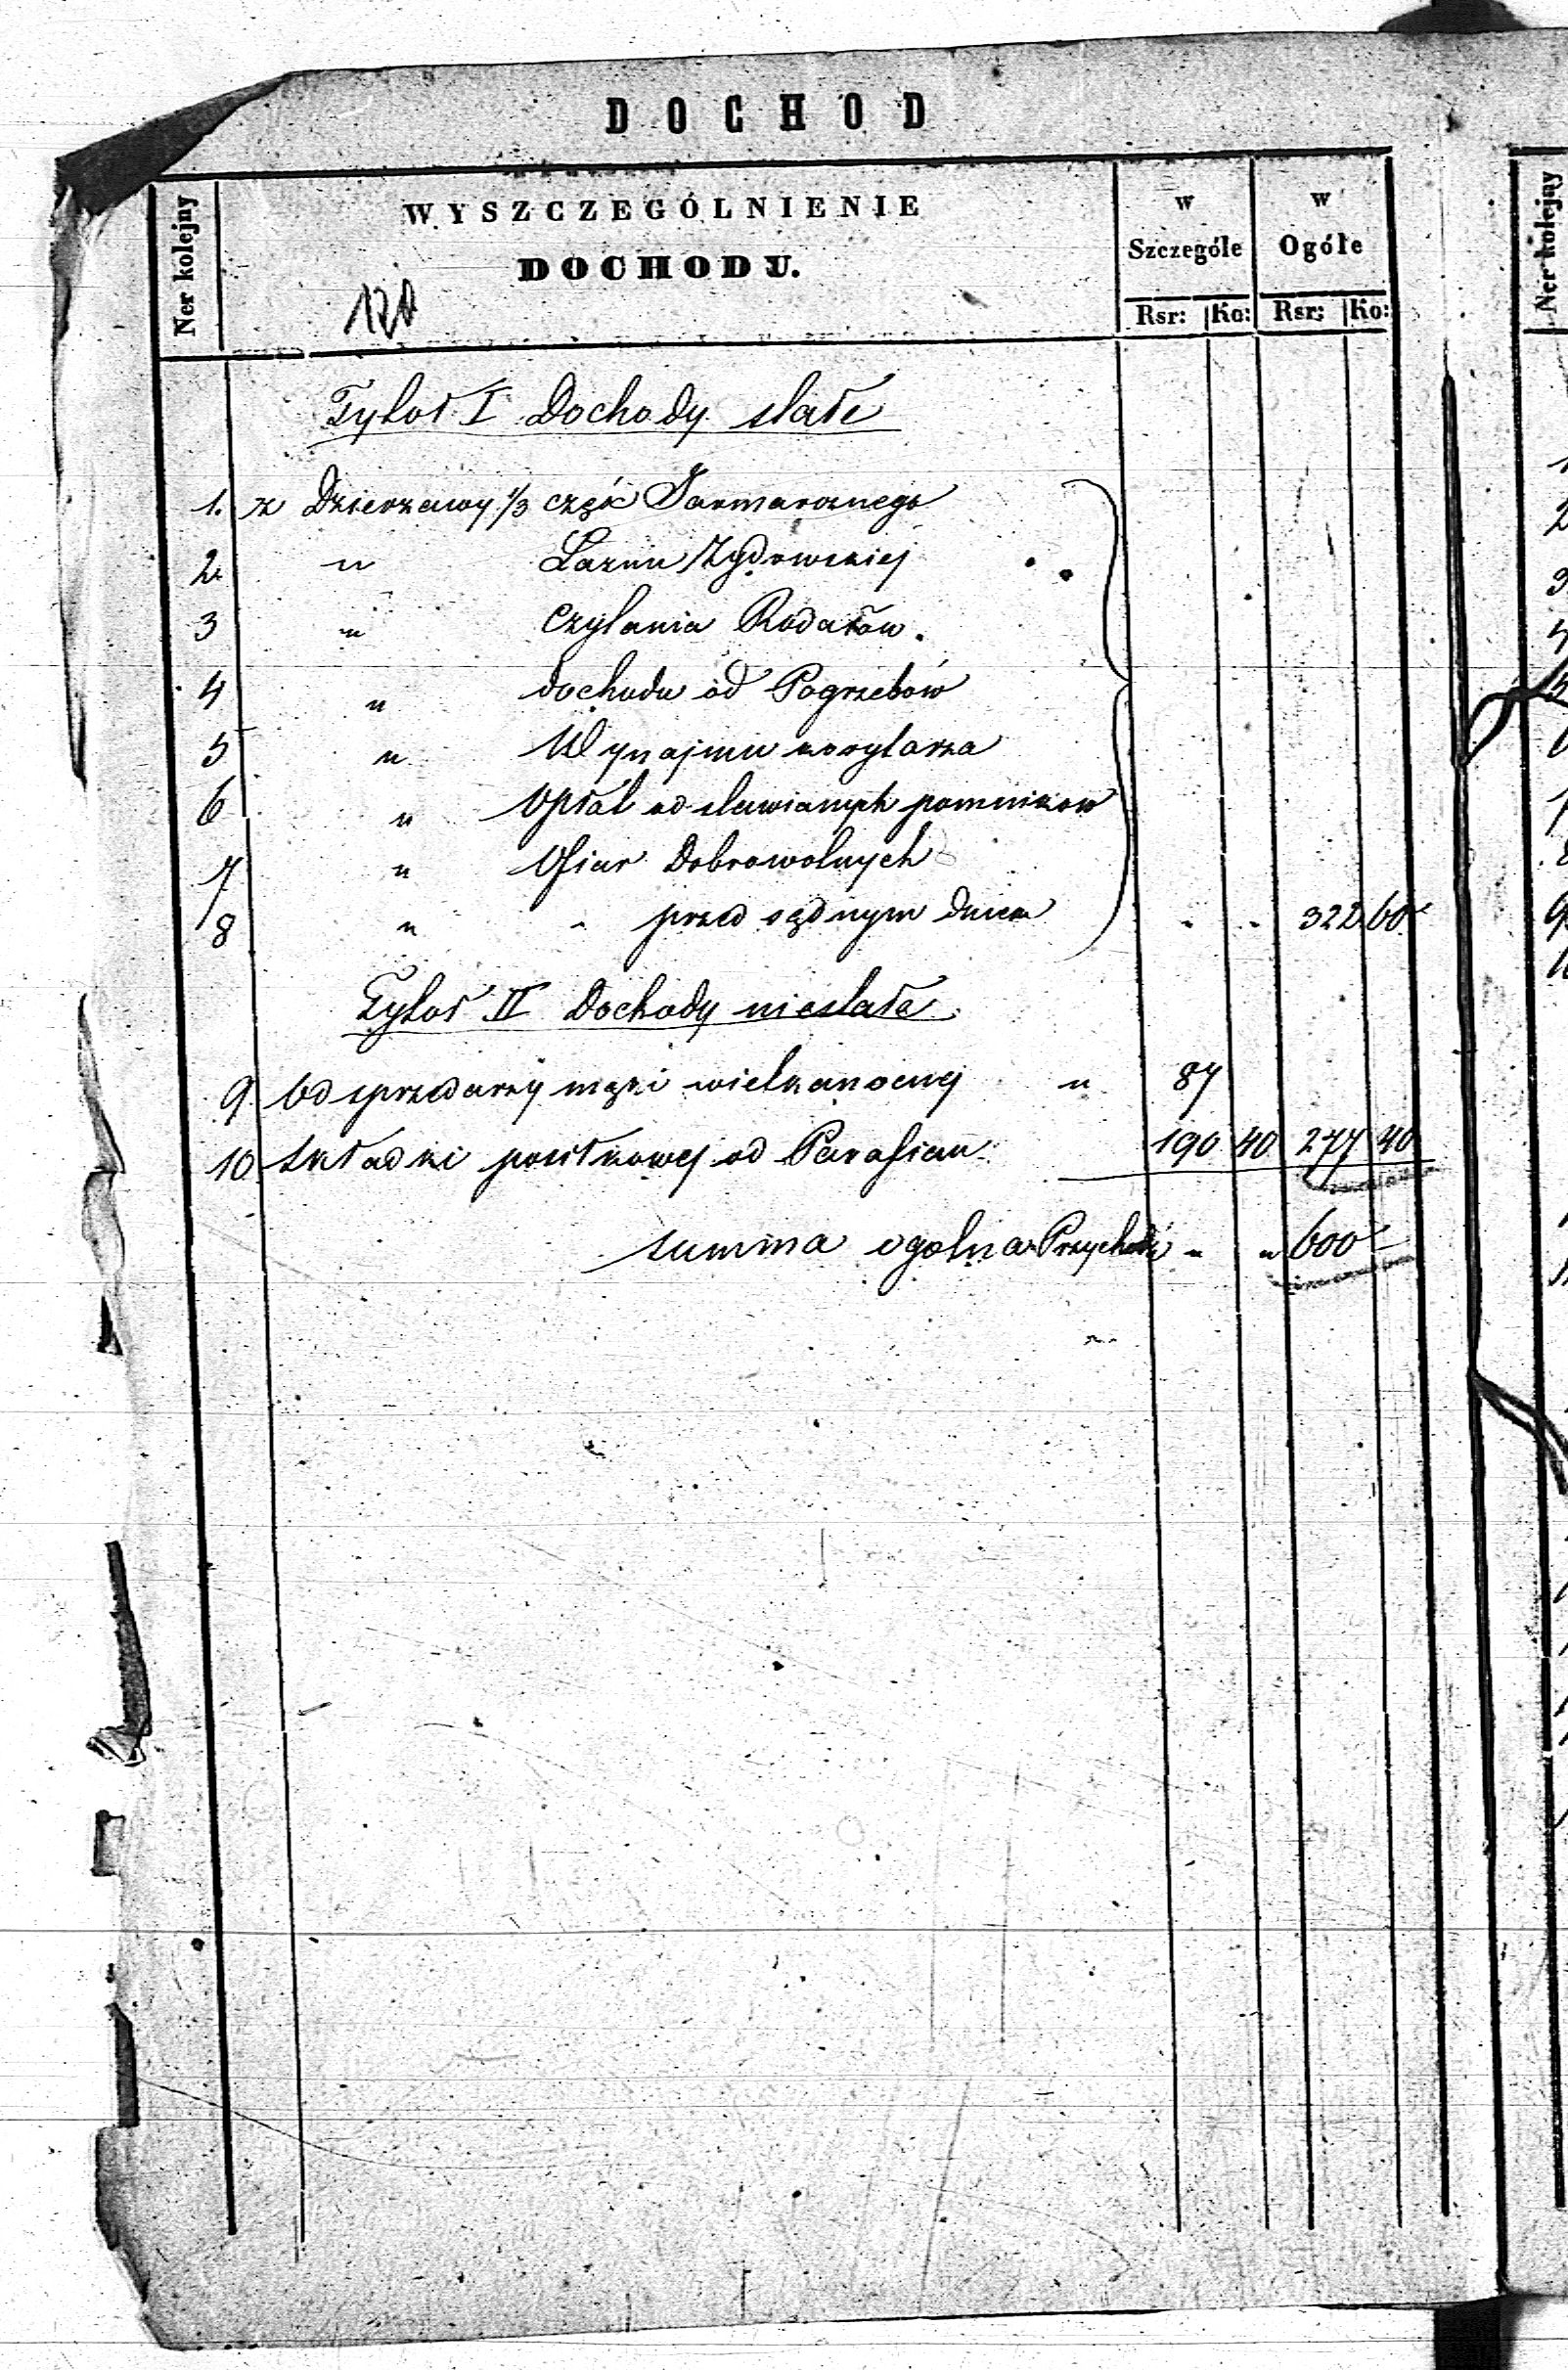 DOCHOD
Ner kolejny
WYSZCZEGÓLNIENIE
DOCHODU.
w Szczególe
w Ogóle
Rsr: Ko: Rsr: Ko:
Tytoł I Dochody stałe
1. z Dzierzawy 1/3 część Jarmarcznego
2. " Łazni Żydowskiej
3 " Czytania Rodałow.
4 " dochodu od Pogrzebów
5 " Wynajmu korytarza
6 " Opłat od stawianych pomnikow
7 " Ofiar Dobrowolnych
8 " " przed sądnym dniem " " 322 60
Tytoł II Dochody niestałe
9. Od sprzedarzy mąki wielkanocnej " 87
10 Składki posiłkowej od Parafian 190 40 277 40
Summa ogolna Przychodu " " 600 -
Ner kolejny